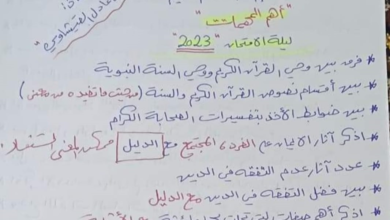 أهم المخصصات
ليلة الامتحان "2023"
* فرق بين وحي القرآن الكريم ووحي السنة النبوية
* بين أقسام نصوص القرآن الكريم والسنة (من حيث ما تفيده من معنى)
* بين ضوابط الأخذ بتفسيرات الصحابة الكرام
* اذكر آثار الإيمان على الفرد والمجتمع مع الدليل
* عدد آثار عدم التفقه في الدين
* بين فضل التفقه في الدين مع الدليل
* اذكر أهم